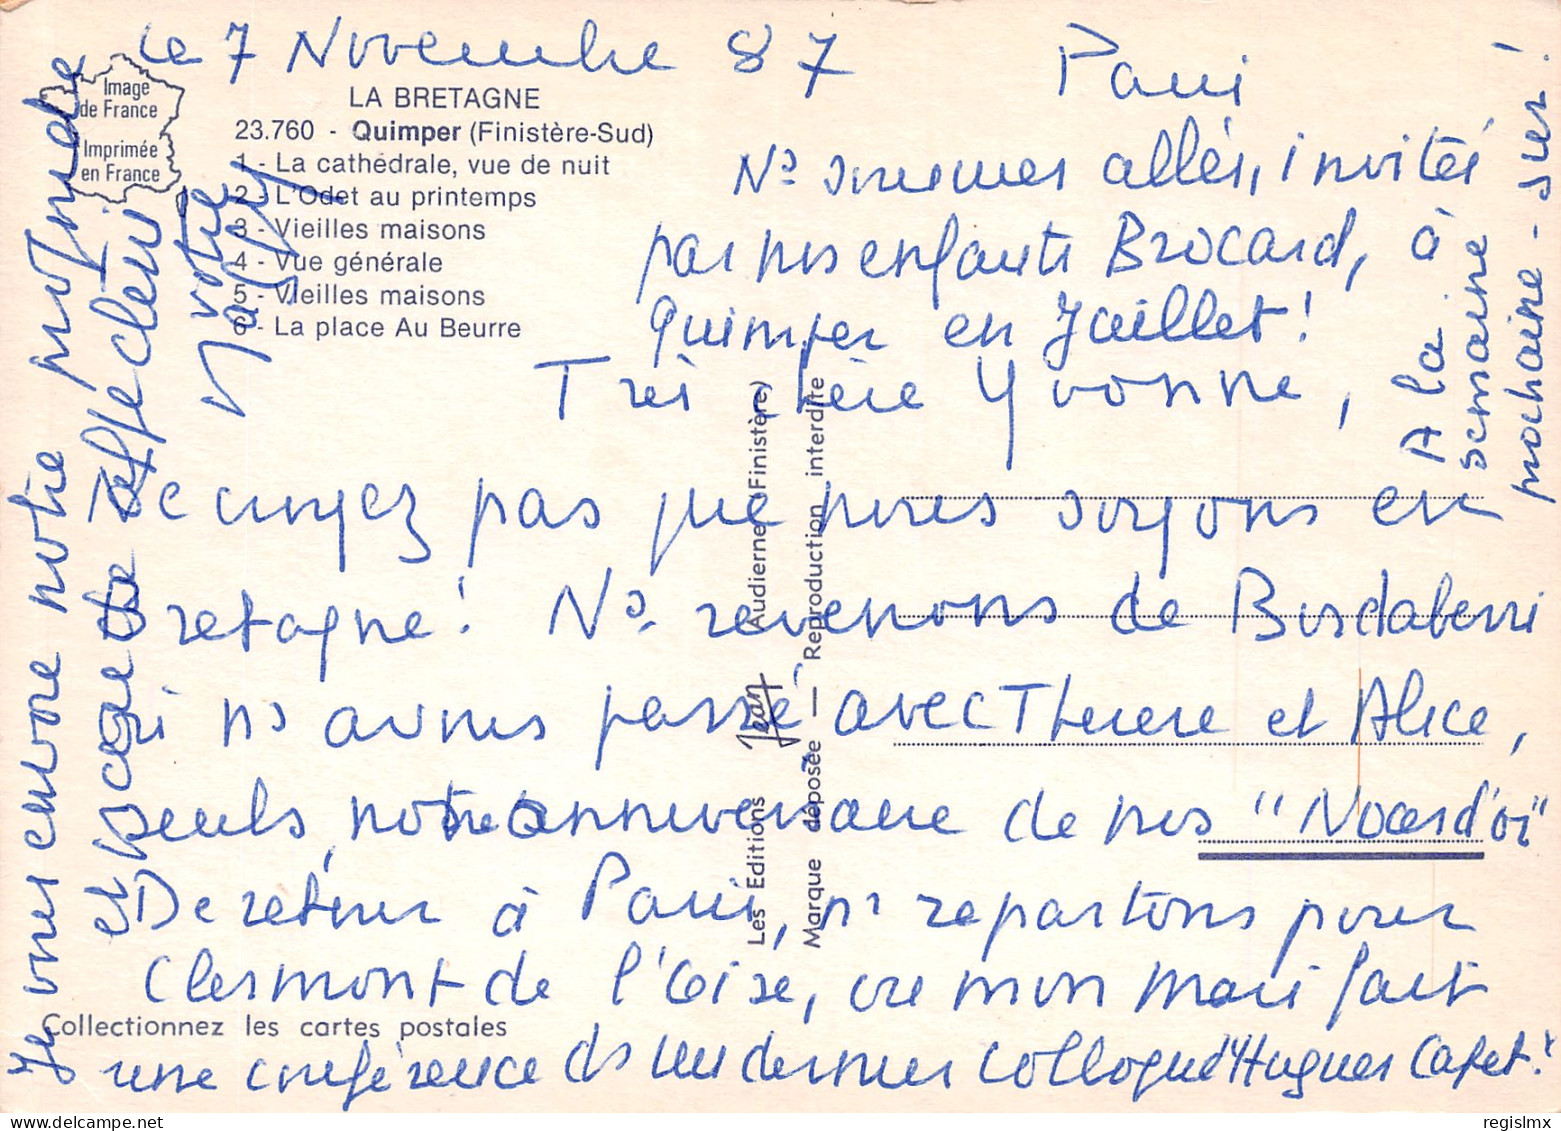 le 7 Novembre 87 Paris
Image
de France
Imprimée
en France
LA BRETAGNE
23.760 - Quimper (Finistère-Sud)
1 - La cathédrale, vue de nuit
2 - L'Odet au printemps
3 - Vieilles maisons
4 - Vue générale
5 - Vieilles maisons
6 - La place Au Beurre
Ns sommes allés, invités
par nos enfants Brocard, à
Quimper en Juillet!
Très chère Yvonne,
Ne croyez pas que nous soyons en
Bretagne! Ns revenons de Burdaberri
où ns avons passé avec Therese et Alice,
seuls, notre anniversaire de nos "Noces d'or"
De retour à Paris, ns repartons pour
Clermont de l'Oise, où mon mari fait
une conférence ds un dernier colloque d'Hugues Capet!
A la
semaine
prochaine - sur!
Je vous envoie notre profonde
et affection
votre
Les Editions Jean Audierne (Finistère)
Marque déposée — Reproduction interdite
Collectionnez les cartes postales
regislmx